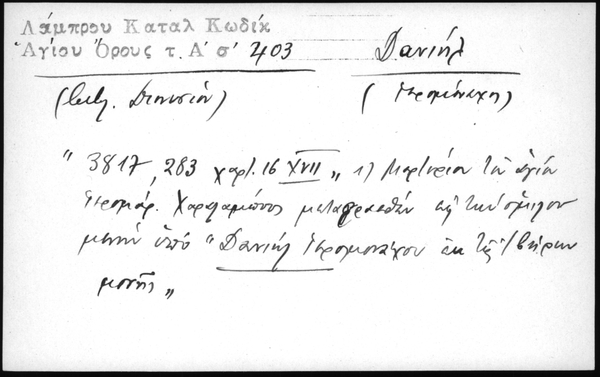 Λάμπρου Καταλ Κωδίκ
Ἁγίου Ὄρους τ. Α' σ' 403
Δανιήλ
(Βιβλ. Διονυσίου)
(Ἱερομόναχος)
" 3817, 283 χαρτ. 16 XVII „ 1) Μαρτύριον τοῦ ἁγίου
ἱερομάρ. Χαραλάμπους μεταφρασθὲν εἰς τὴν
ὑπὸ "Δανιὴλ ἱερομονάχου ἐκ τῆς Ἰβήρων
μονῆς „